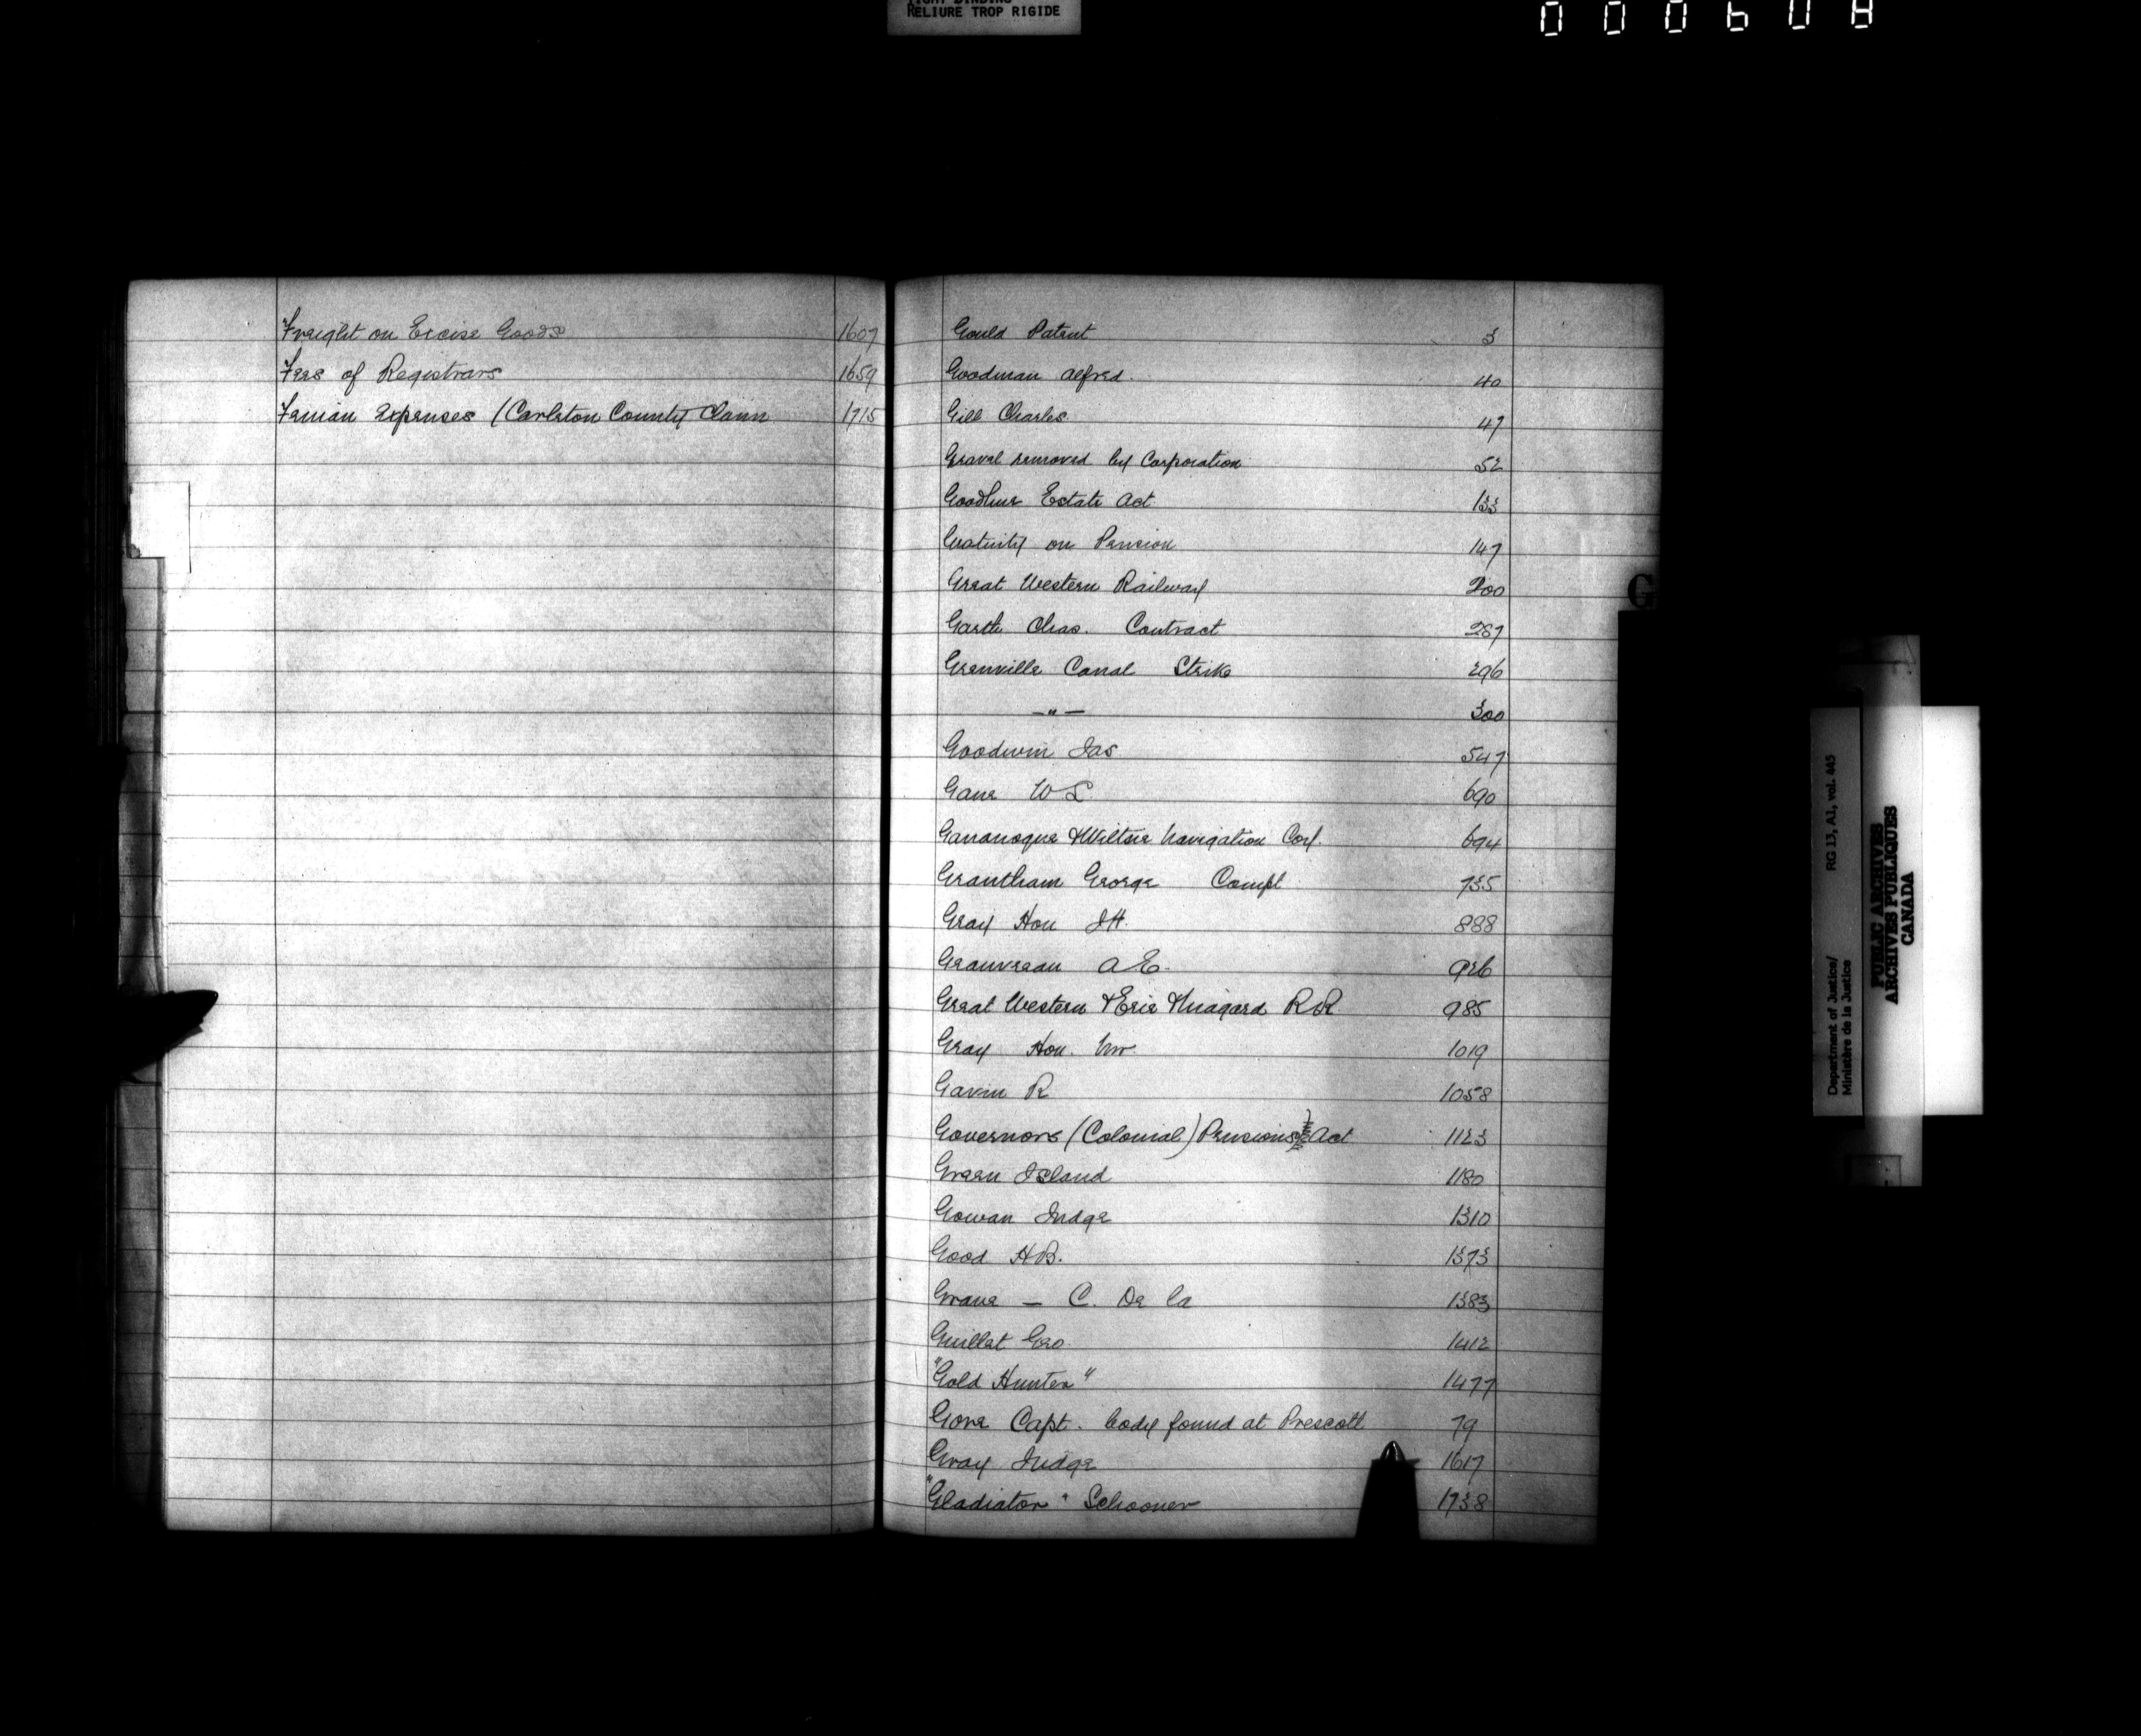 TIGHT BINDING
RELIURE TROP RIGIDE
000608
Freight on Excise Goods 1607
Fees of Registrars 1659
Fenian Expenses (Carleton County Claim 1715
Gould Patent 3
Goodman Alfred. 40
Gill Charles. 47
Gravel removed by Corporation 52
Goodhue Estate Act 133
Gratuity on Pension 147
Great Western Railway 200
Garth Chas. Contract 287
Grenville Canal Strike 296
—"— 300
Goodwin Jas 547
Gane W L 690
Gananoque & Wiltsie Navigation Coy. 694
Grantham George Compl 735
Gray Hon J H. 888
Gauvreau A E. 926
Great Western & Erie & Niagara R R 985
Gray Hon. Mr. 1019
Gavin R 1058
Governors (Colonial) Pensions Act 1123
Green Island 1180
Gowan Judge 1310
Good H B. 1373
— C. De La 1383
Guillet Geo. 1412
"Gold Hunter" 1477
Gore Capt. body found at Prescott 79
Gray Judge 1617
"Gladiator" Schooner 1738
G
Department of Justice/ RG 13, A1, vol. 445
Ministère de la Justice
PUBLIC ARCHIVES
ARCHIVES PUBLIQUES
CANADA